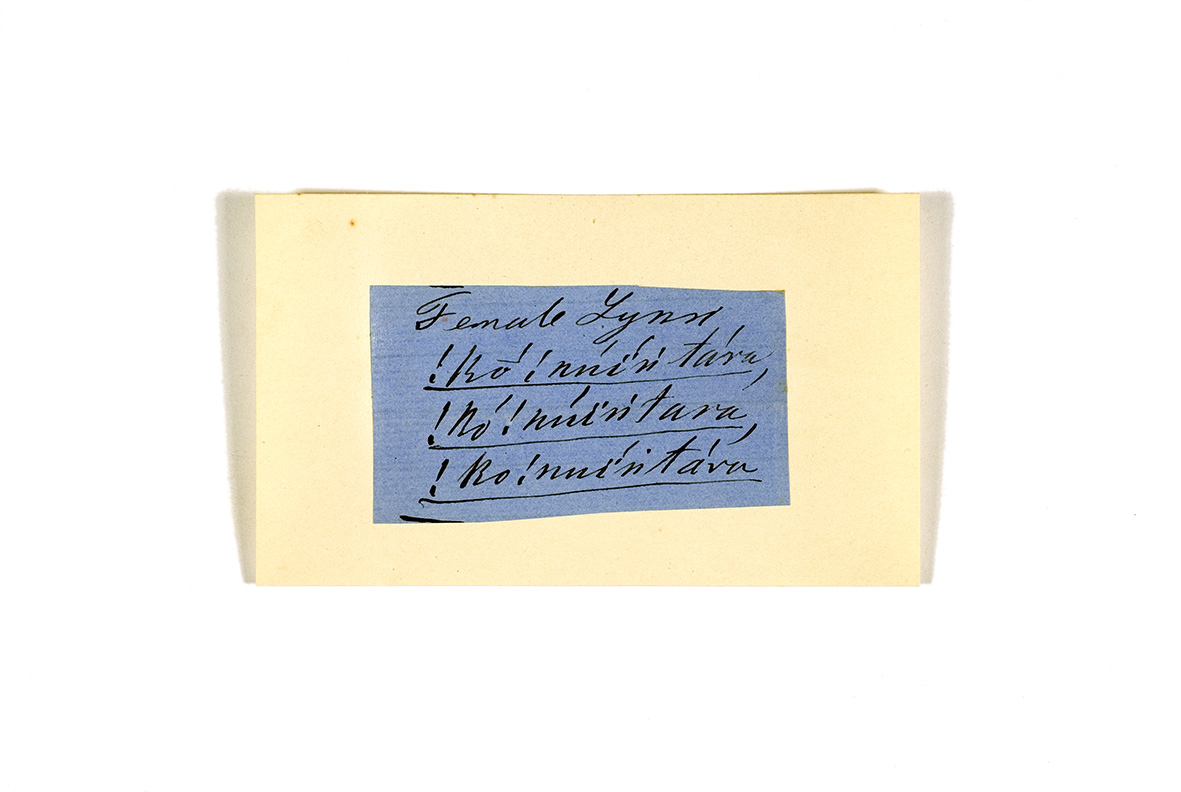 Female Lynx
!kŏ́ !nuíṅ tára,
!kó !núiṅ tara,
!ko !nuíṅ tára